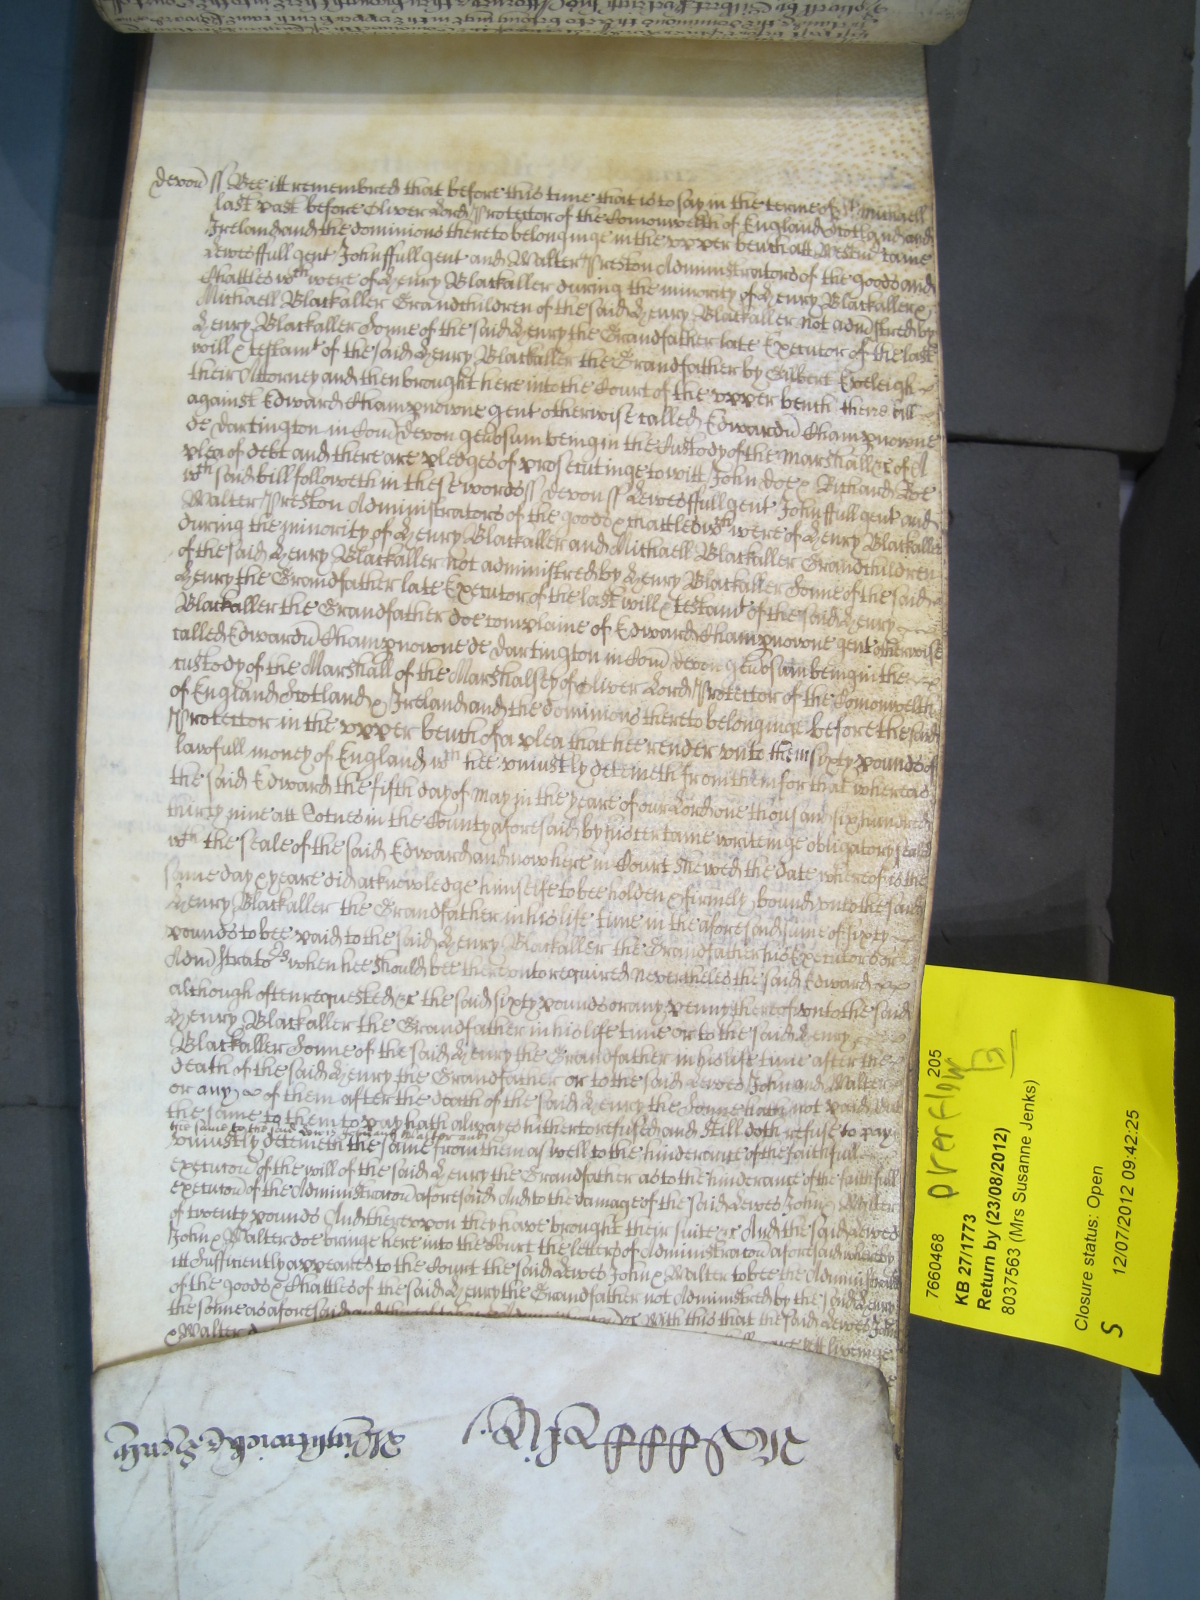 devon ss Bee itt remembred that before this time that is to say in the terme of St Michaell
last past before Oliver Lord Protector of the Comonwelth of England Scotland and
Ireland and the dominions thereto belonginge in the upper bench att Westm came
Lewes ffull gent John ffull gent and Walter Preston Administrators of the goods and
Chattles wch were of Henry Blackaller during the minority of Henry Blackaller &
Michaell Blackaller Grandchildren of the said Henry Blackaller not admstred by
Henry Blackaller Sonne of the said Henry the Grandfather late Executor of the last
will & testamt of the said Henry Blackaller the Grandfather by Gilbert Eveleigh
their Attorney and then brought here into the Court of the upper bench there bill
against Edward Champnowne gent otherwise called Edwardu Champnowne
de Dartington in Com Devon generosum being in the Custody of the Marshall &c of A
plea of debt and there are pledges of prosecutinge to witt John Doe & Richard Roe
wch said bill followeth in these words ss devon ss Lewes ffull gent John ffull gent and
Walter Preston Administrators of the goods & chattles wch were of Henry Blackaller
during the minority of Henry Blackaller and Michaell Blackaller Grandchildren
of the said Henry Blackaller not administred by Henry Blackaller Sonne of the said
Henry the Grandfather late Executor of the last will & testamt of the said Henry
Blackaller the Grandfather doe complaine of Edward Champnowne gent otherwise
called Edwardu Champnowne de Dartington in Com Devon being in the
custody of the Marshall of the Marshalsey of Oliver Lord Protector of the Comonwelth
of England Scotland & Ireland and the dominions thereto belonginge before the said
Protector in the upper bench of a plea that hee render unto them sixty pounds of
lawfull money of England wch hee uniustly deteineth from them for that whereas
the said Edward the fifth day of May in the yeare of our Lord one thousand six hundred
thirty nine att Totnes in the County aforesaid by his certaine writeinge obligatory sealed
wth the seale of the said Edward and now here in Court shewed the date whereof is the
same day & yeare did acknowledge himselfe to bee holden & firmely bound unto the said
Henry Blackaller the Grandfather in his life time in the aforesaid sume of sixty
pounds to bee paid to the said Henry Blackaller the Grandfather his Executors or
Admstrators when hee should bee thereunto required nevertheles the said Edward
although often requested &c the said sixty pounds or any penny thereof unto the said
Henry Blackaller the Grandfather in his life time or to the said Henry
Blackaller Sonne of the said Henry the Grandfather in his life time after the
death of the said Henry the Grandfather or to the said Lewes John and Walter
or any of them after the death of the said Henry the Sonne hath not paid but
the same to them to pay hath alwayes hitherto refused and still doth refuse to pay
the same to the said Lewes John and Walter and
uniustly deteineth the same from them as well to the hinderance of the faithfull
execution of the will of the said Henry the Grandfather as to the hinderance of the faithfull
execution of the Administration aforesaid And to the damage of the said Lewes John & Walter
of twenty pounds And thereupon they have brought their suite &c And the said Lewes
John & Walter doe bringe here into the Court the letters of Administration aforesaid whereby
itt sufficiently appeares to the Court the said Lewes John & Walter to bee the Administrators
of the goods & Chattles of the said Henry the Grandfather not Administred by the said Henry
the sonne as aforesaid and With this that the said Lewes John
& Walter
7660468 205
overflow
B
KB 27/1773
Return by (23/08/2012)
8037563 (Mrs Susanne Jenks)
Closure status: Open
S 12/07/2012 09:42:25